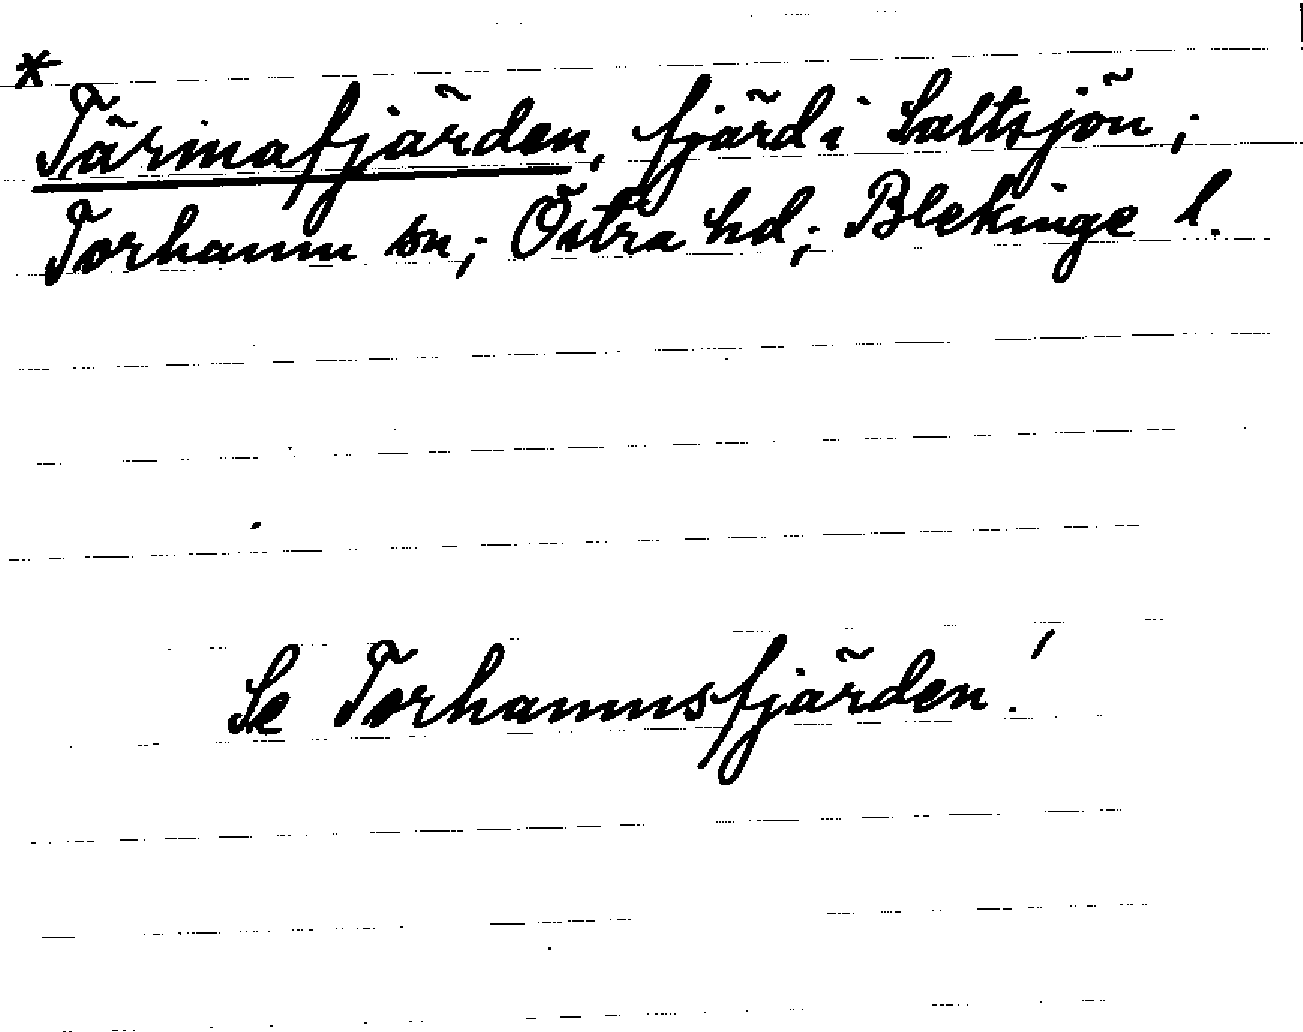 * Tärnafjärden, fjärd i Saltsjön;
Torhamn sn; Östra hd; Blekinge l.
Se Torhamnsfjärden!